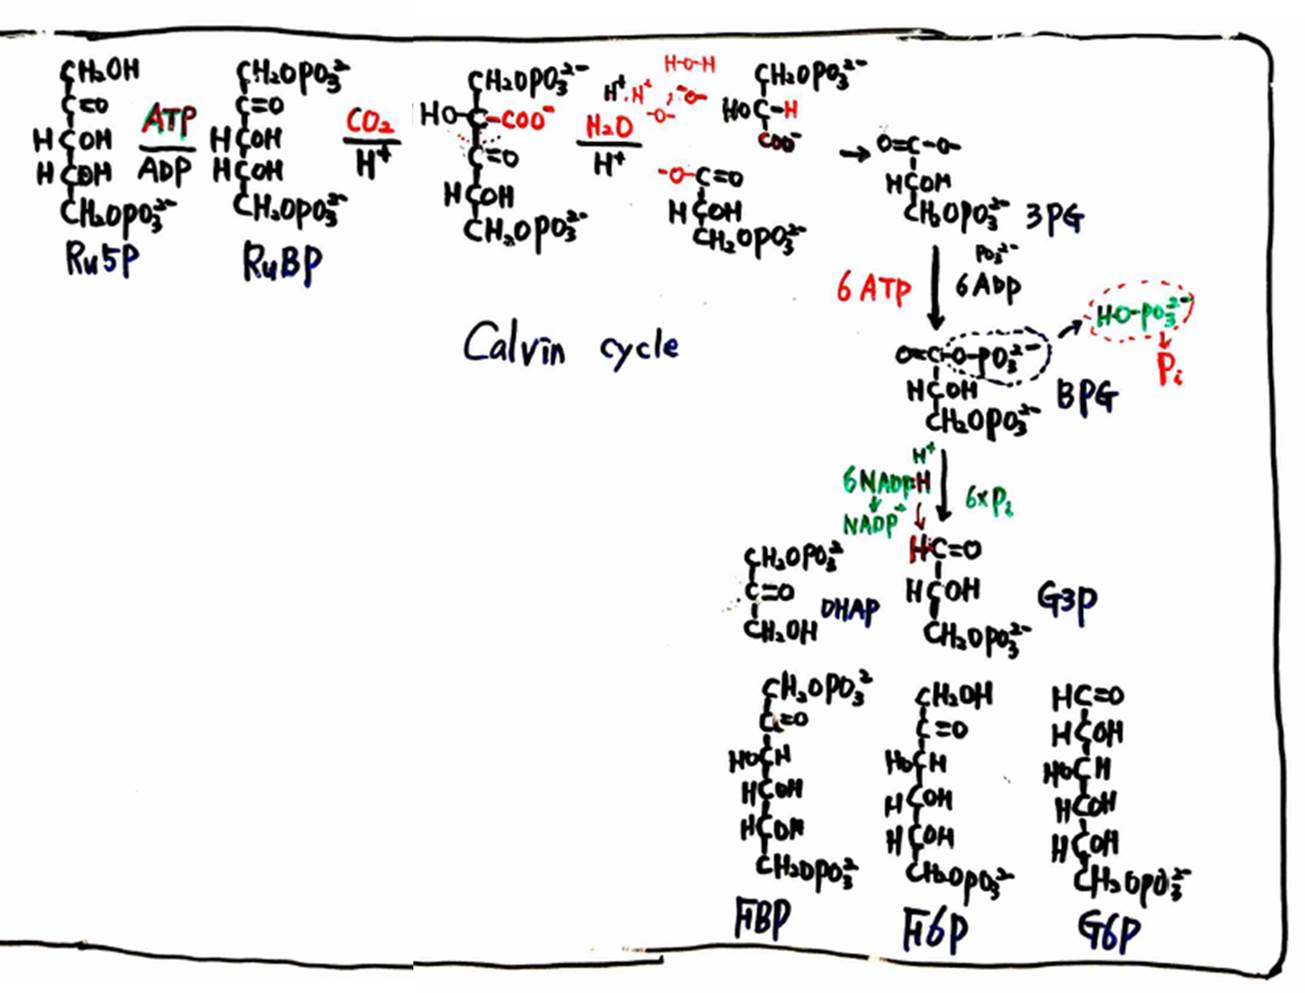 CH₂OH
C=O
HCOH
HCOH
CH₂OPO₃²⁻
Ru5P
ATP
ADP
CH₂OPO₃²⁻
C=O
HCOH
HCOH
CH₂OPO₃²⁻
RuBP
CO₂
H⁺
CH₂OPO₃²⁻
HO-C-COO⁻
C=O
HCOH
CH₂OPO₃²⁻
H₂O
H⁺
H-O-H
H⁺ H⁺
-O-
-O-
CH₂OPO₃²⁻
HO C-H
COO⁻
-O-C=O
HCOH
CH₂OPO₃²⁻
O=C-O-
HCOH
CH₂OPO₃²⁻
3PG
Calvin cycle
PO₃²⁻
6 ATP
6 ADP
O=C-O-PO₃²⁻
HCOH
CH₂OPO₃²⁻
BPG
HO-PO₃²⁻
Pi
H⁺
6NADPH
NADP⁺
6×Pi
HC=O
HCOH
CH₂OPO₃²⁻
G3P
CH₂OPO₃²
C=O
CH₂OH
DHAP
CH₂OPO₃²
C=O
HOCH
HCOH
HCOH
CH₂OPO₃²
FBP
CH₂OH
C=O
HOCH
HCOH
HCOH
CH₂OPO₃²⁻
F6P
HC=O
HCOH
HOCH
HCOH
HCOH
CH₂OPO₃²⁻
G6P